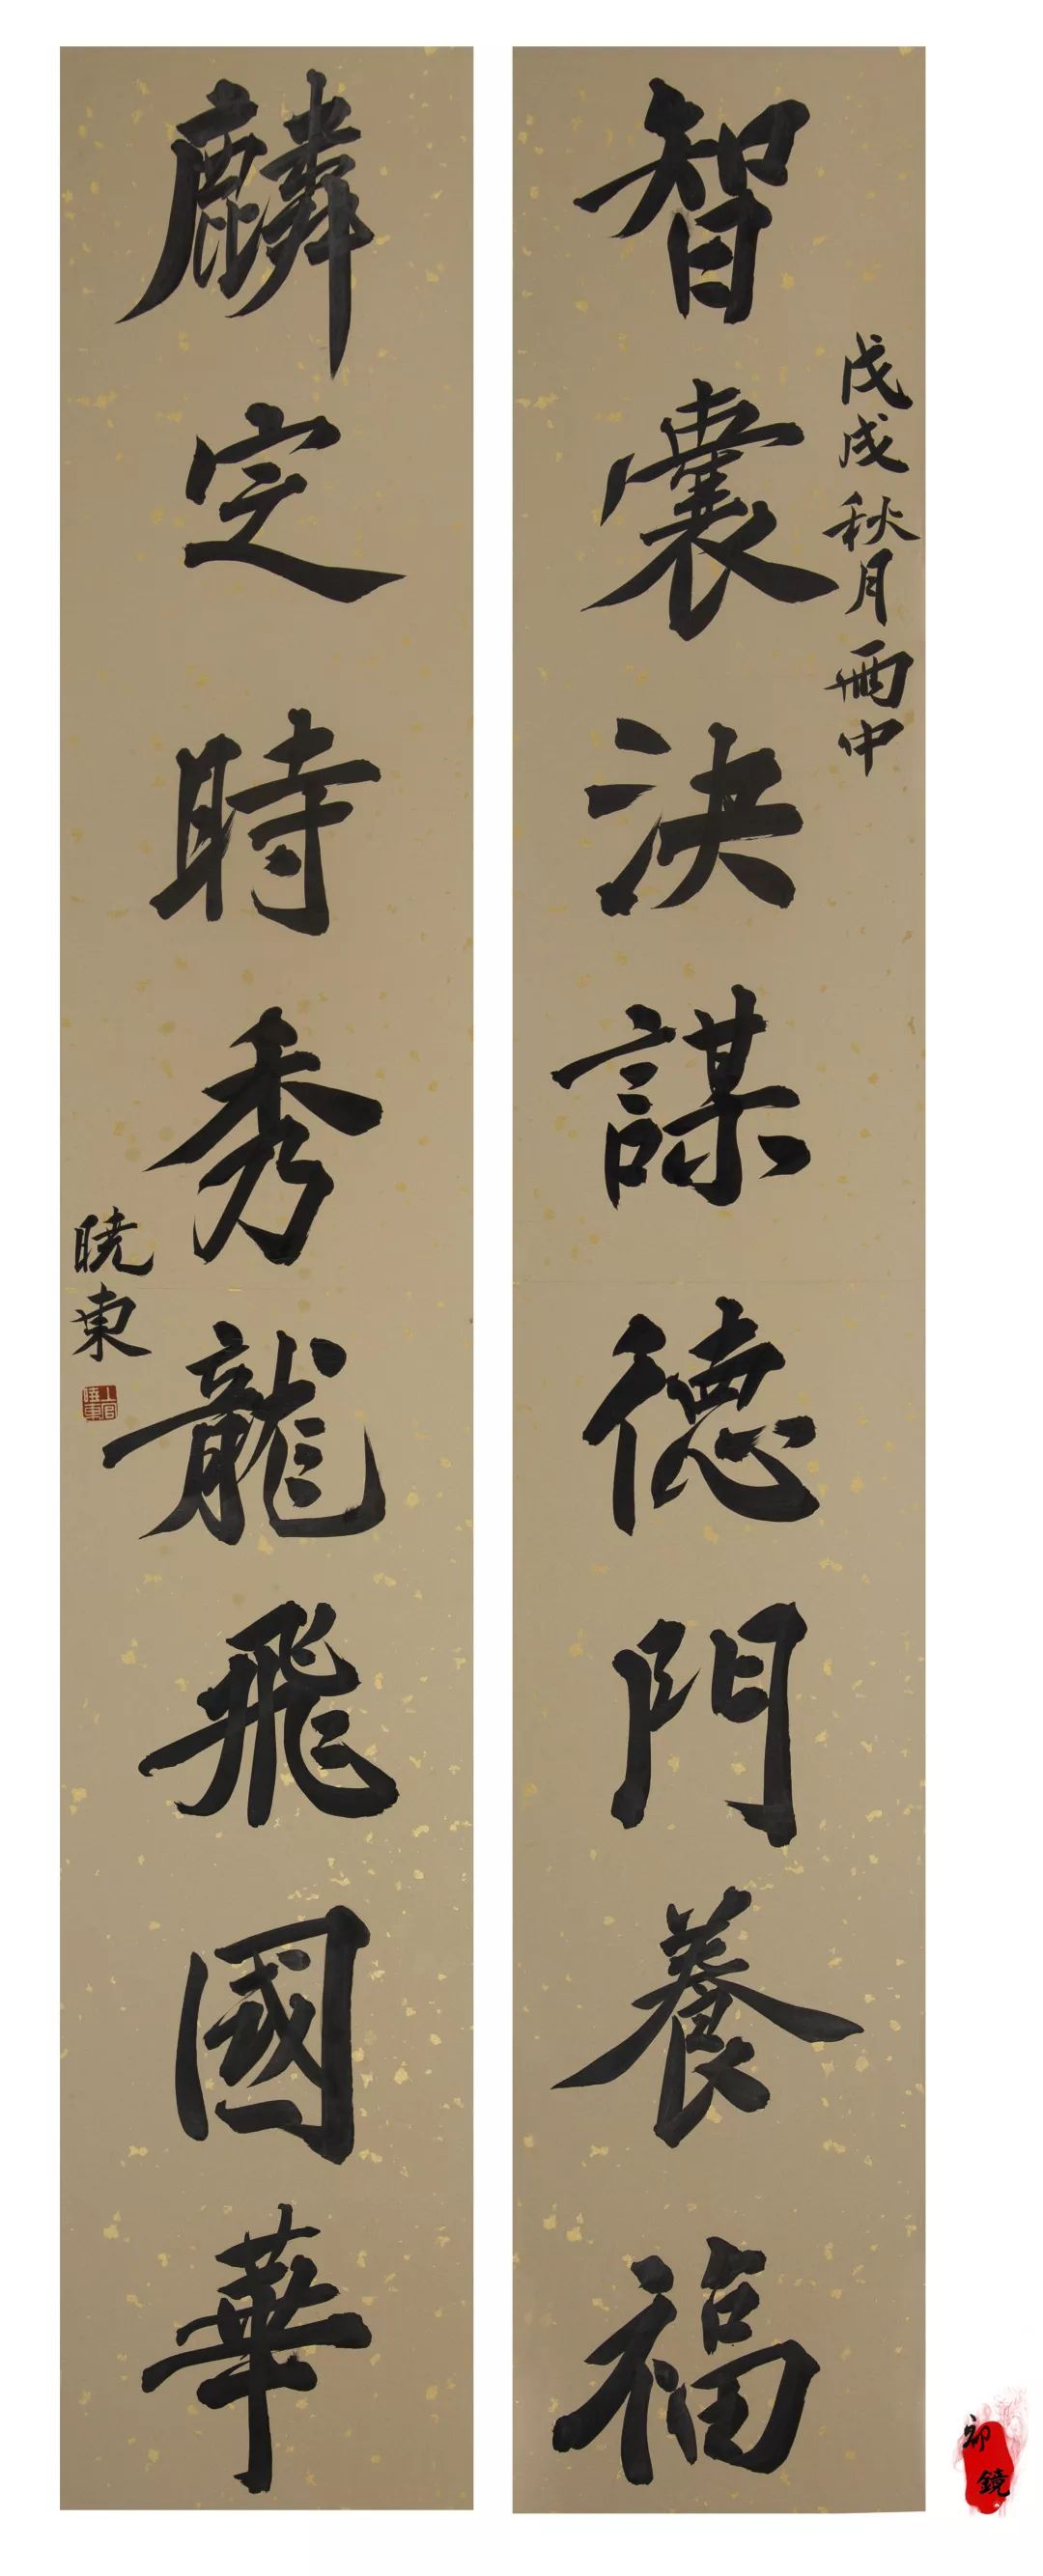 智囊決謀德門養福
戊戌秋月雨中
麟定時秀龍飛國華
曉東
上官曉東
鏡